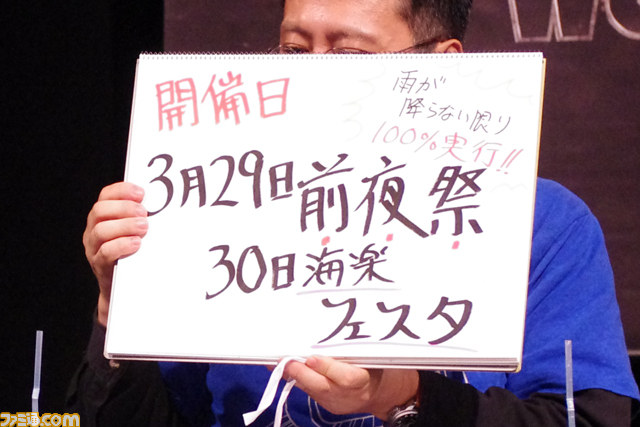 開備日
雨が
降らない限り
100%実行!!
3月29日前夜祭
30日海楽
フェスタ
ファミ通.com